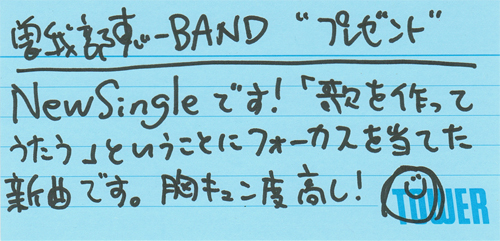 曽我部恵一BAND “プレゼント”
New Singleです!「歌を作って
うたう」ということにフォーカスを当てた
新曲です。胸キュン度高し!
TOWER